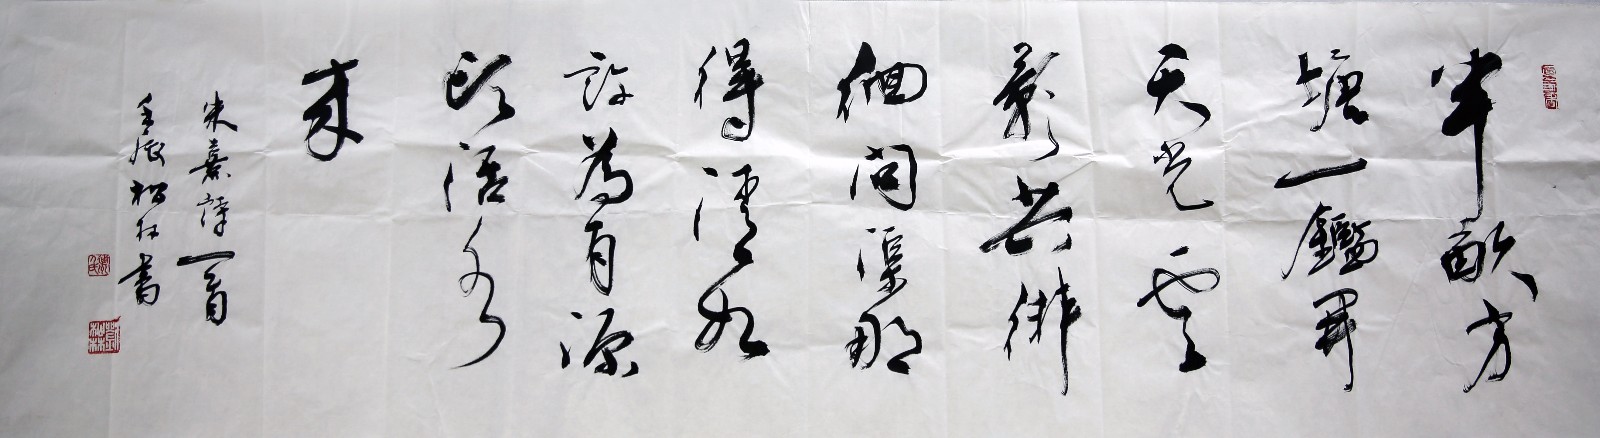 半畝方
塘一鑑開
天光雲
影共徘
徊問渠那
得清如
許為有源
頭活水
來
朱熹詩一首
壬辰松林書